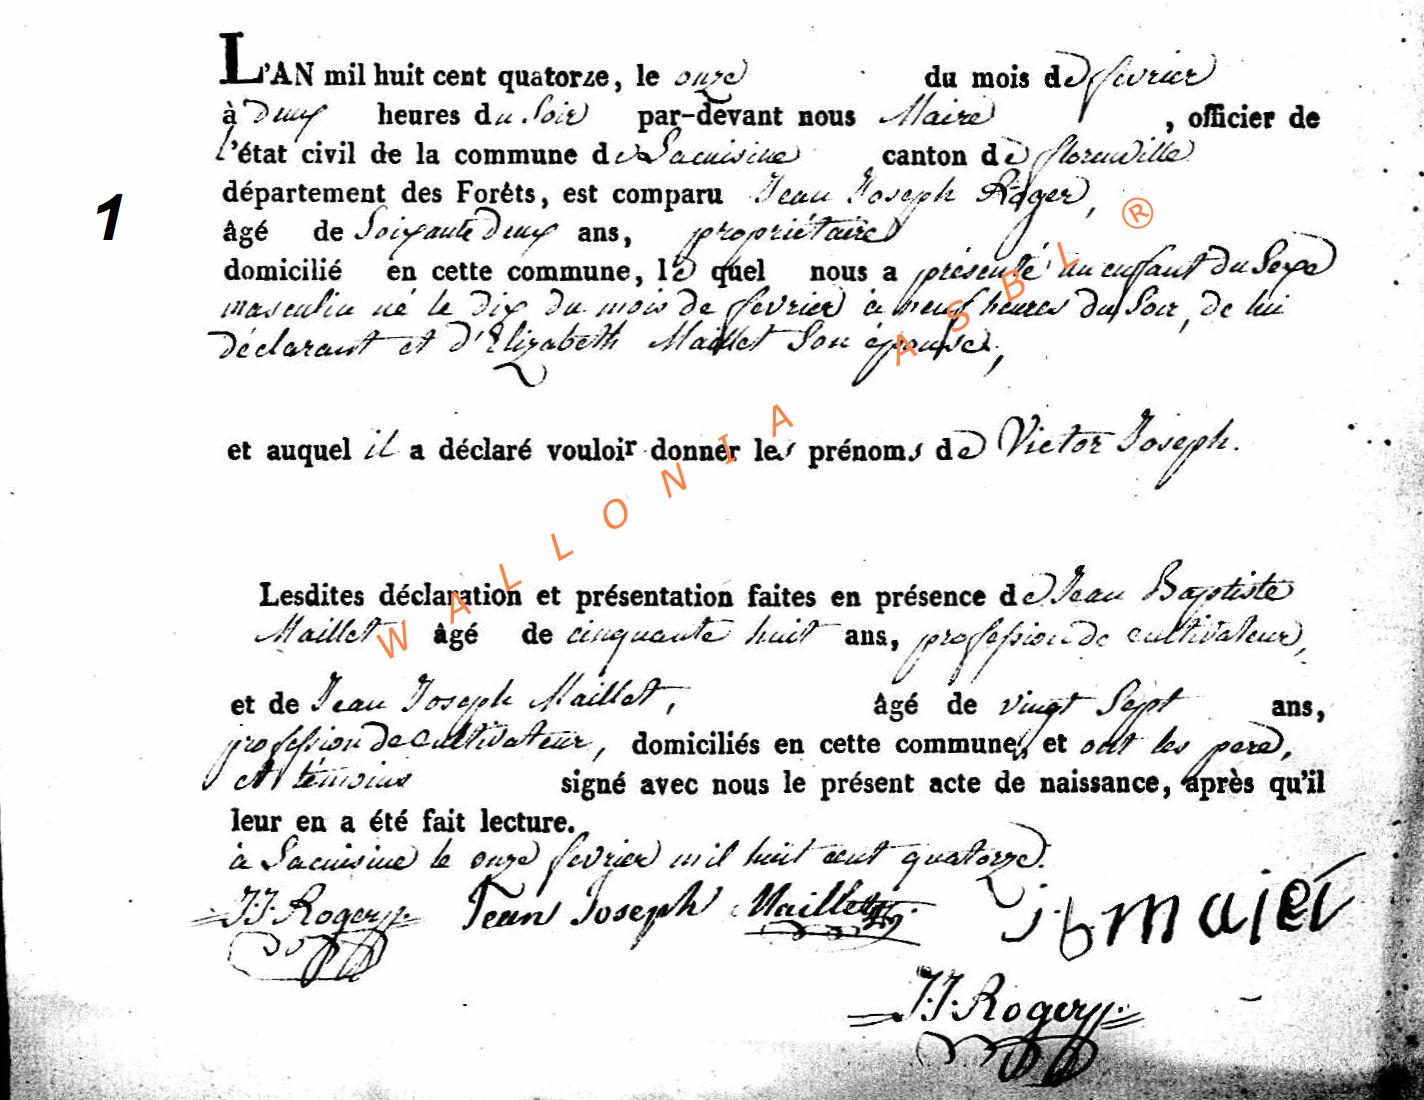 L'AN mil huit cent quatorze, le onze du mois de fevrier
à Deux heures du Soir par-devant nous Maire , officier de
l'état civil de la commune de Lacuisine canton de florenville
département des Forêts, est comparu Jean Joseph Roger,
1
âgé de Soixante Deux ans, propriétaire
domicilié en cette commune, le quel nous a présenté un enfant du Sexe
masculin né le dix du mois de fevrier à neuf heures du Soir, de lui
déclarant et d'Elizabeth Maillet Son épouse,
et auquel il a déclaré vouloir donner les prénoms de Victor Joseph.
Lesdites déclaration et présentation faites en présence de Jean Baptiste
Maillet âgé de cinquante huit ans, profession de cultivateur,
et de Jean Joseph Maillet, âgé de vingt Sept ans,
profession de cultivateur, domiciliés en cette commune, et ont les pere,
et témoins signé avec nous le présent acte de naissance, après qu'il
leur en a été fait lecture.
à Lacuisine le onze fevrier mil huit cent quatorze.
J.J. Roger Jean Joseph Maillet j b majei
J.J. Roger
WALLONIA ASBL ®